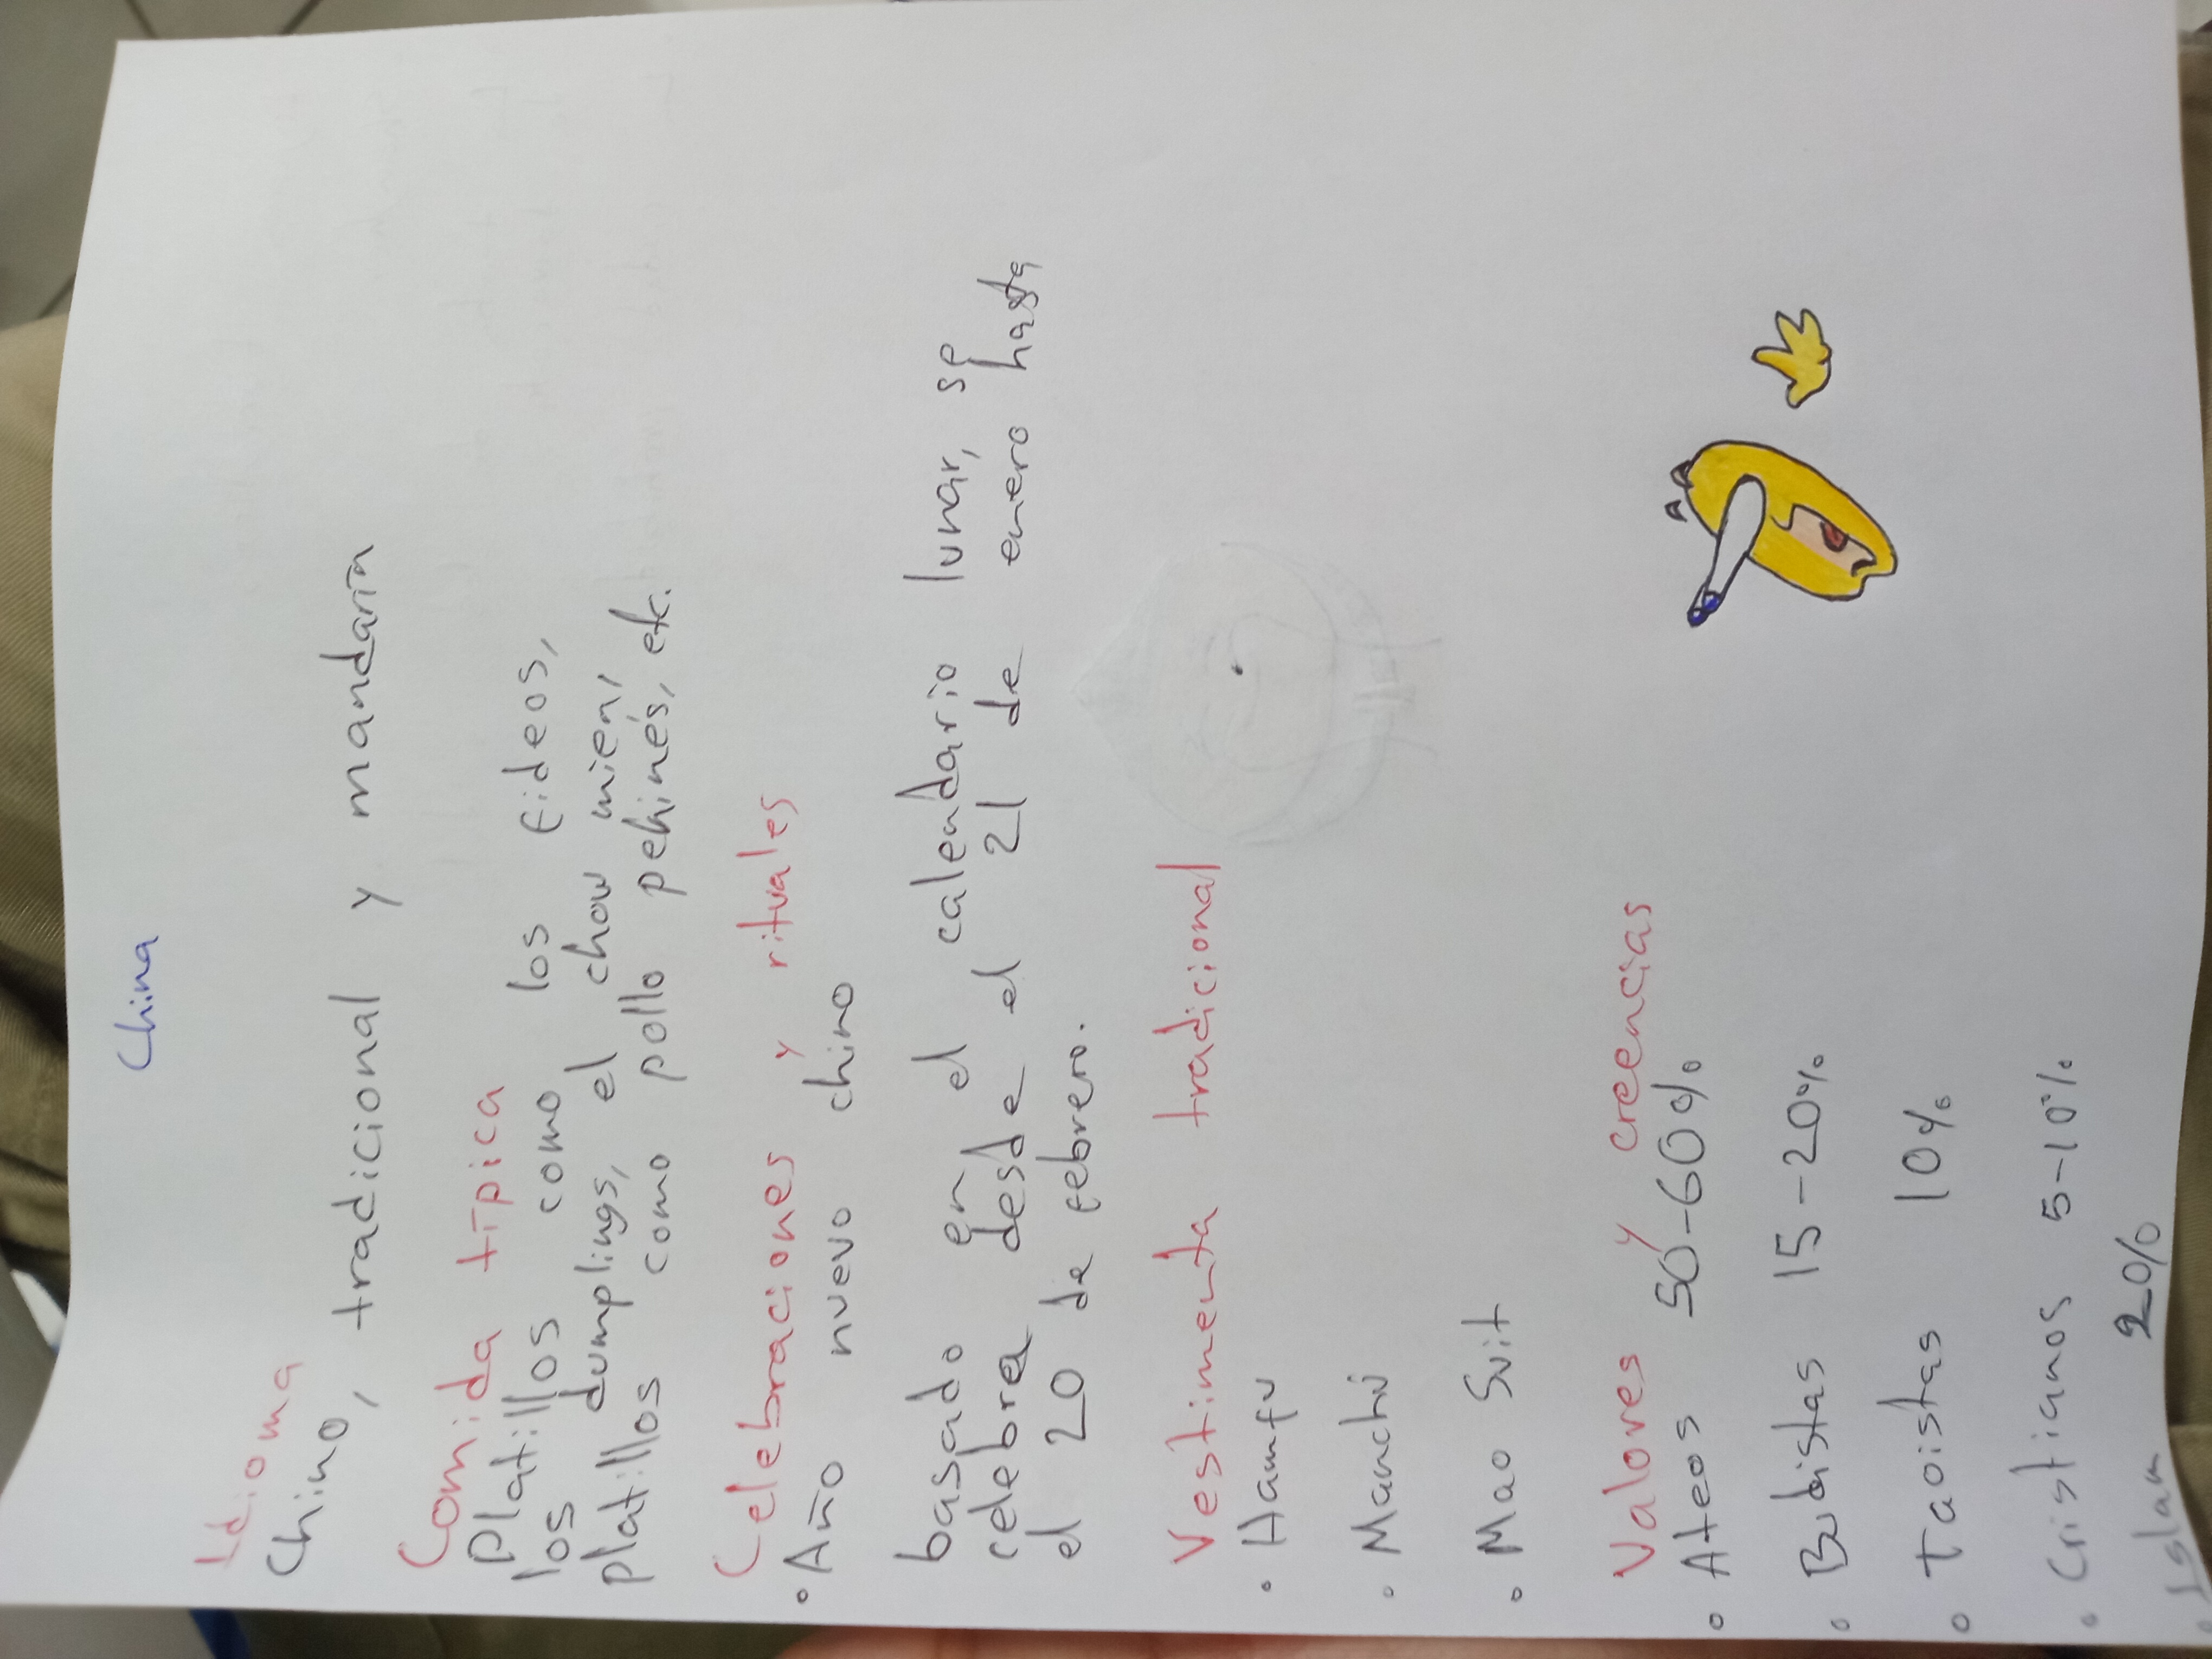 China
Idioma
Chino, tradicional y mandarín
Comida típica
Platillos como los fideos,
los dumplings, el chow mien,
platillos como pollo pekinés, etc.
Celebraciones y rituales
• Año nuevo chino
basado en el calendario lunar, se
celebra desde el 21 de enero hasta
el 20 de febrero.
Vestimenta tradicional
• Hamfu
• Manchú
• Mao Suit
Valores y creencias
• Ateos 50-60%
• Budistas 15-20%
• Taoistas 10%
• Cristianos 5-10%
• Islam 20%